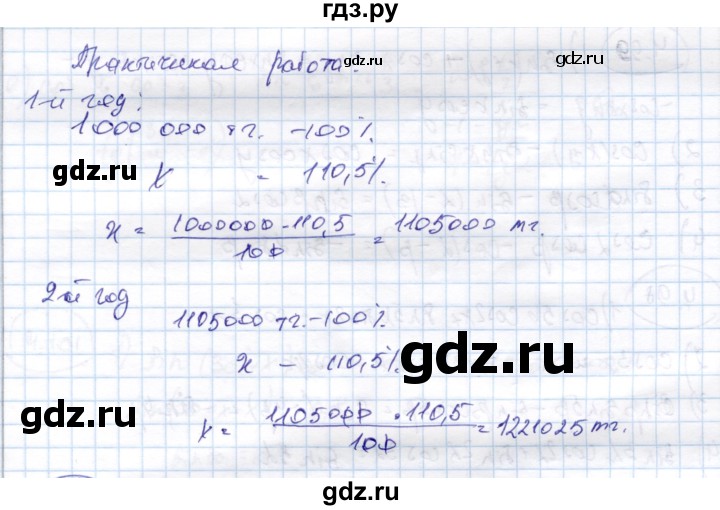 гдз.ру
Практическая работа.
1-й год:
1000 000 тг. - 100%.
gdz.ru
x - 110,5%.
x = 1000000 · 110,5 / 100 = 1105000 тг.
2-й год
1105000 тг. - 100%.
x - 110,5%.
gdz.ru
gdz.ru
x = 1105000 · 110,5 / 100 = 1221025 тг.
gdz.ru